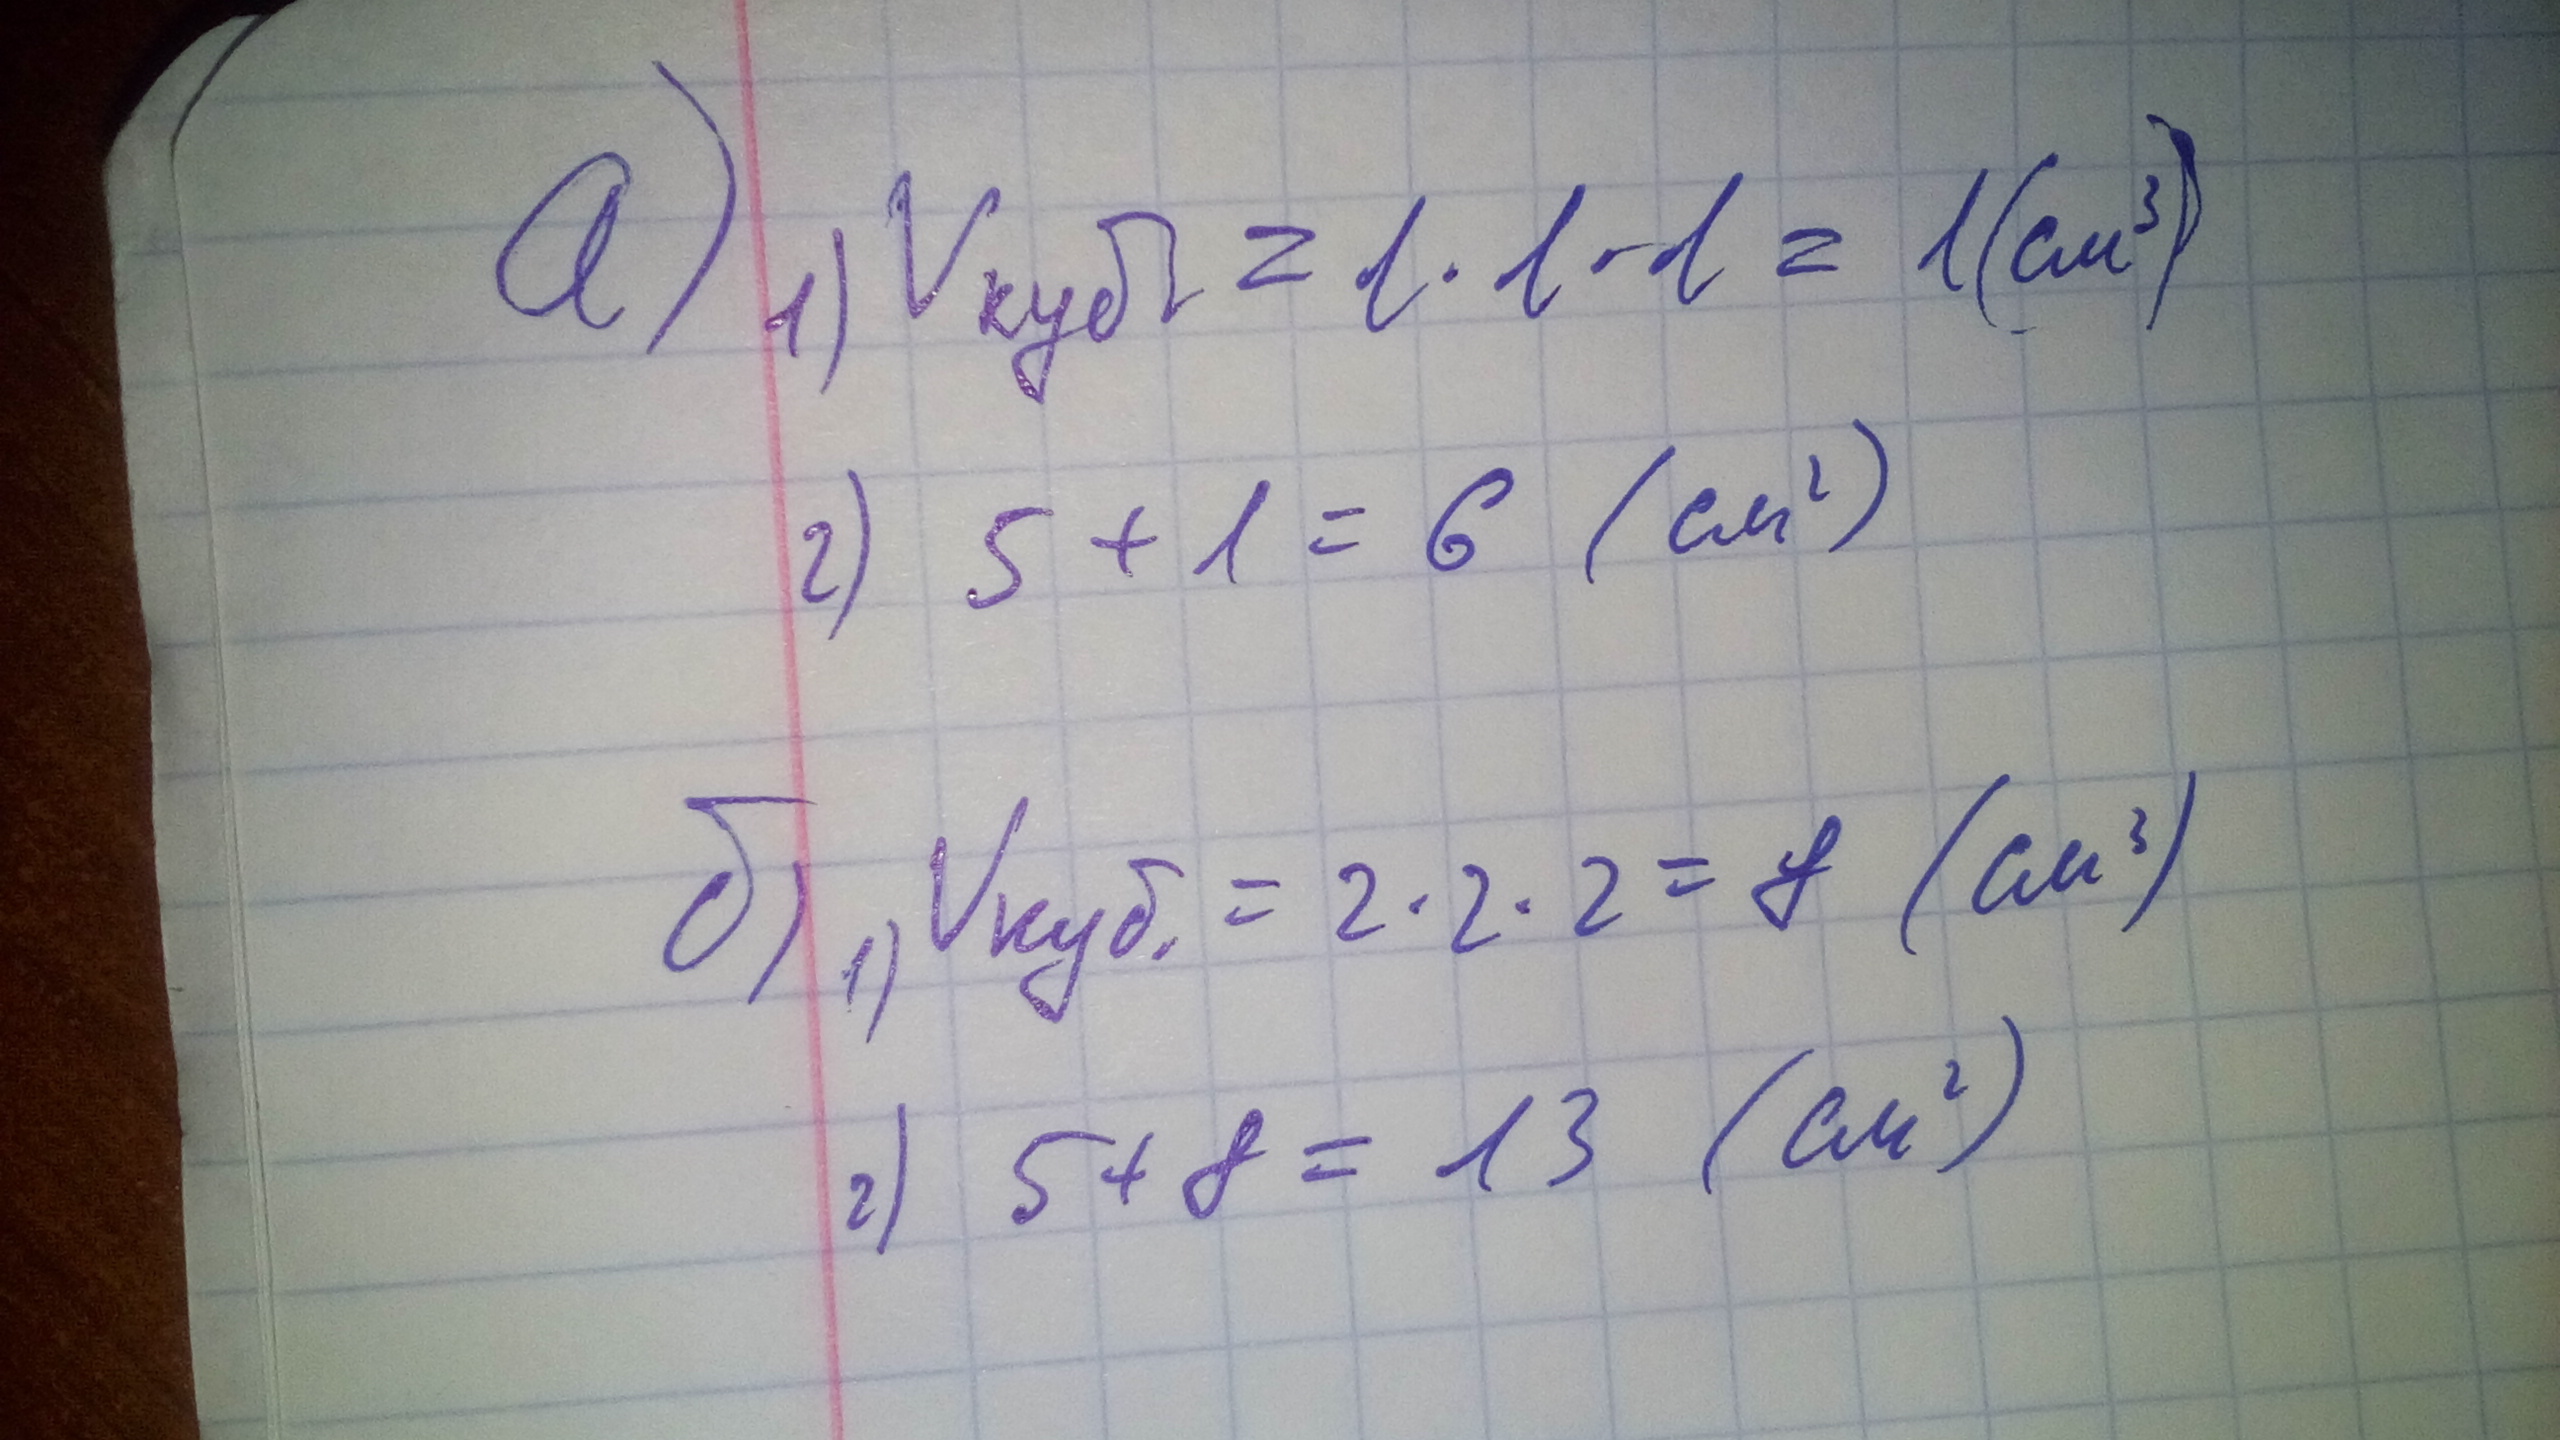 а) 1) Vкуб. = 1·1·1 = 1 (см³)
2) 5 + 1 = 6 (см²)
б) 1) Vкуб. = 2·2·2 = 8 (см³)
2) 5 + 8 = 13 (см²)